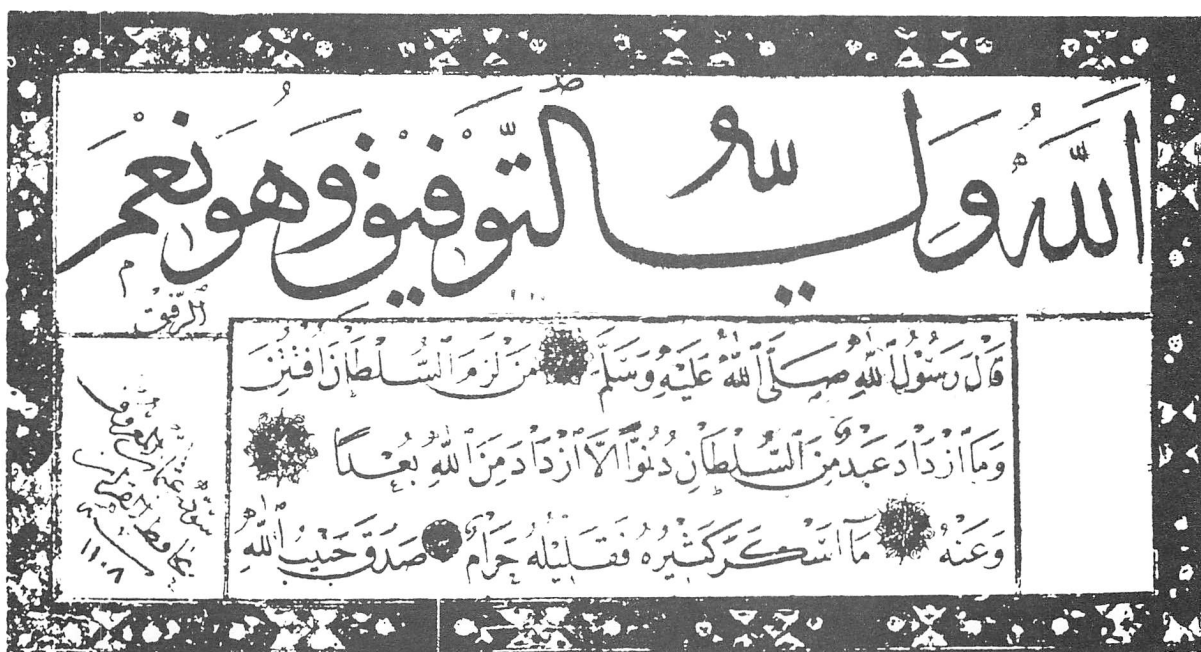 اَللّٰهُ وَلِيُّ التَّوْفِيْقِ وَهُوَ نِعْمَ
الرَّفِيْقُ
قَالَ رَسُوْلُ اللّٰهِ صَلَّى اللّٰهُ عَلَيْهِ وَسَلَّمَ مَنْ لَزِمَ السُّلْطَانَ افْتُتِنَ
وَمَا ازْدَادَ عَبْدٌ مِنَ السُّلْطَانِ دُنُوًّا اِلَّا ازْدَادَ مِنَ اللّٰهِ بُعْدًا
وَعَنْهُ مَا اَسْكَرَ كَثِيْرُهُ فَقَلِيْلُهُ حَرَامٌ صَدَقَ حَبِيْبُ اللّٰهِ
سوّده عثمان المعروف
بحافظ القرآن
١١٠٨